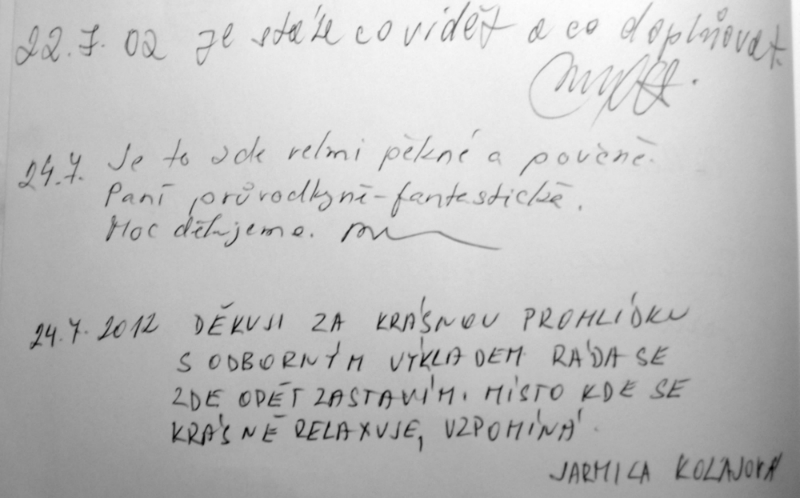 22.7.02 je stále co vidět a co doplňovat.
24.7. Je to zde velmi pěkné a poučné.
Paní průvodkyně-fantastické.
Moc děkujeme.
24.7.2012 DĚKUJI ZA KRÁSNOU PROHLÍDKU
S ODBORNÝM VÝKLADEM RÁDA SE
ZDE OPĚT ZASTAVÍM. MÍSTO KDE SE
KRÁSNĚ RELAXUJE, VZPOMÍNÁ.
JARMILA KOLAJOVÁ